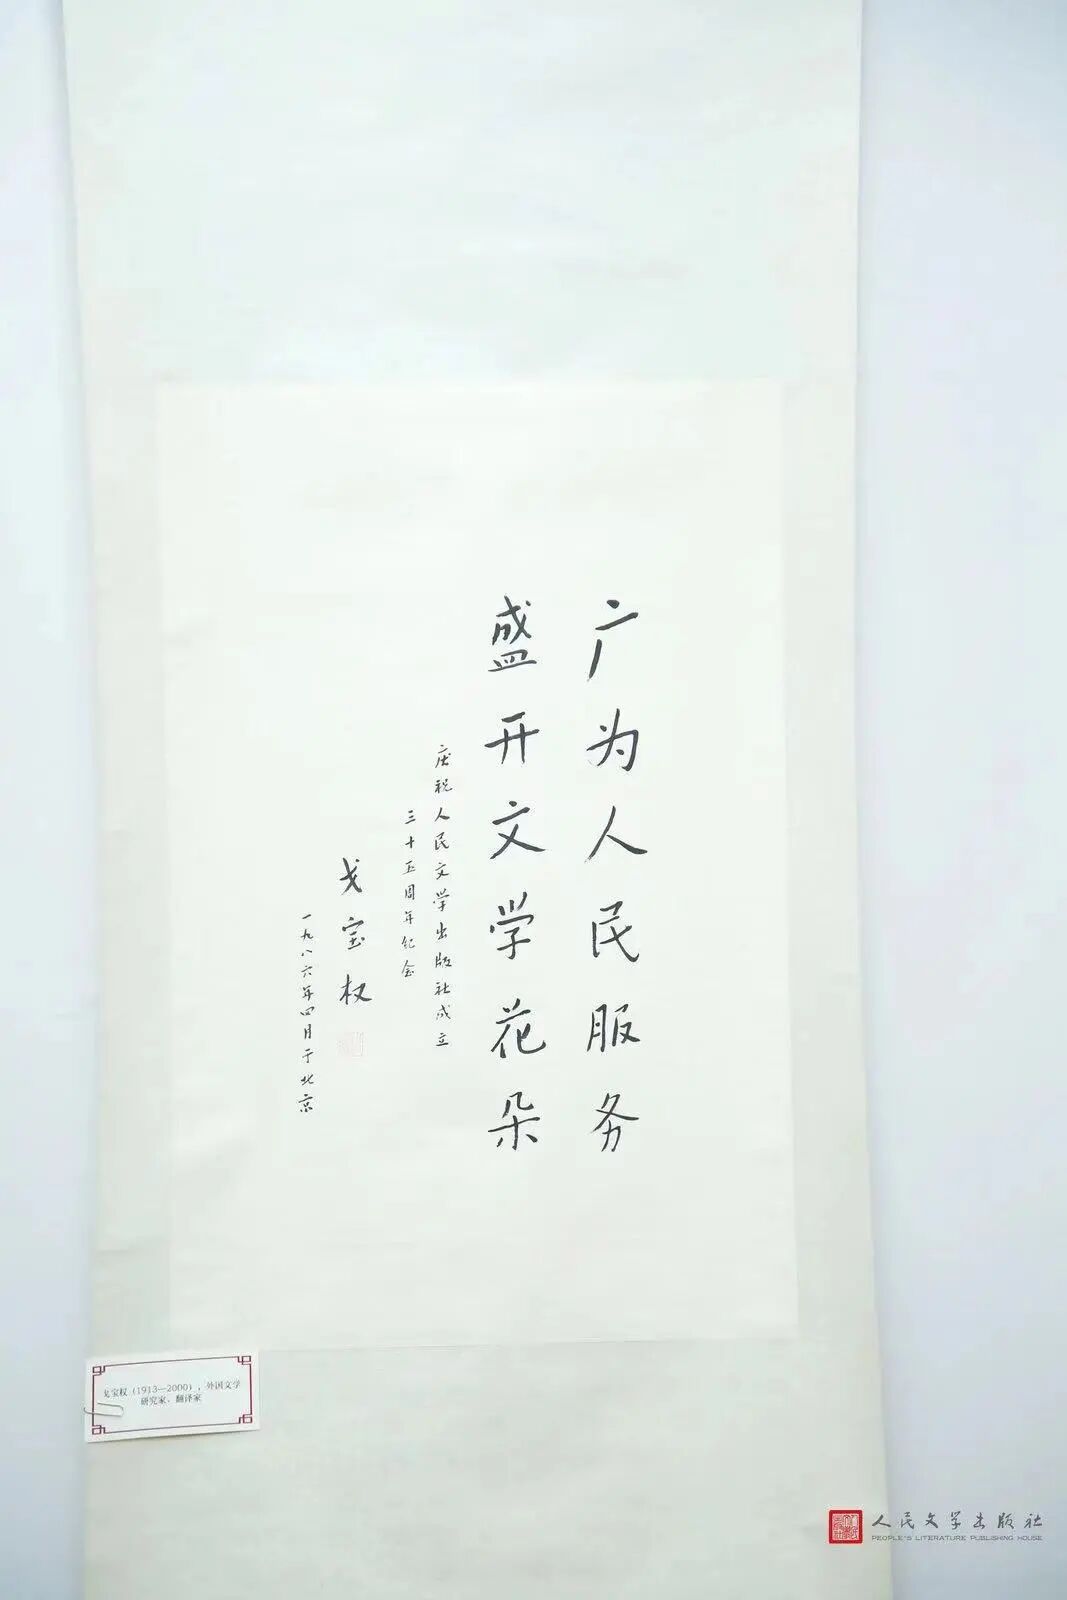 广为人民服务
盛开文学花朵
庆祝人民文学出版社成立
三十五周年纪念
戈宝权
一九八六年四月于北京
戈宝权（1913—2000），外国文学
研究家、翻译家
人民文学出版社
PEOPLE'S LITERATURE PUBLISHING HOUSE